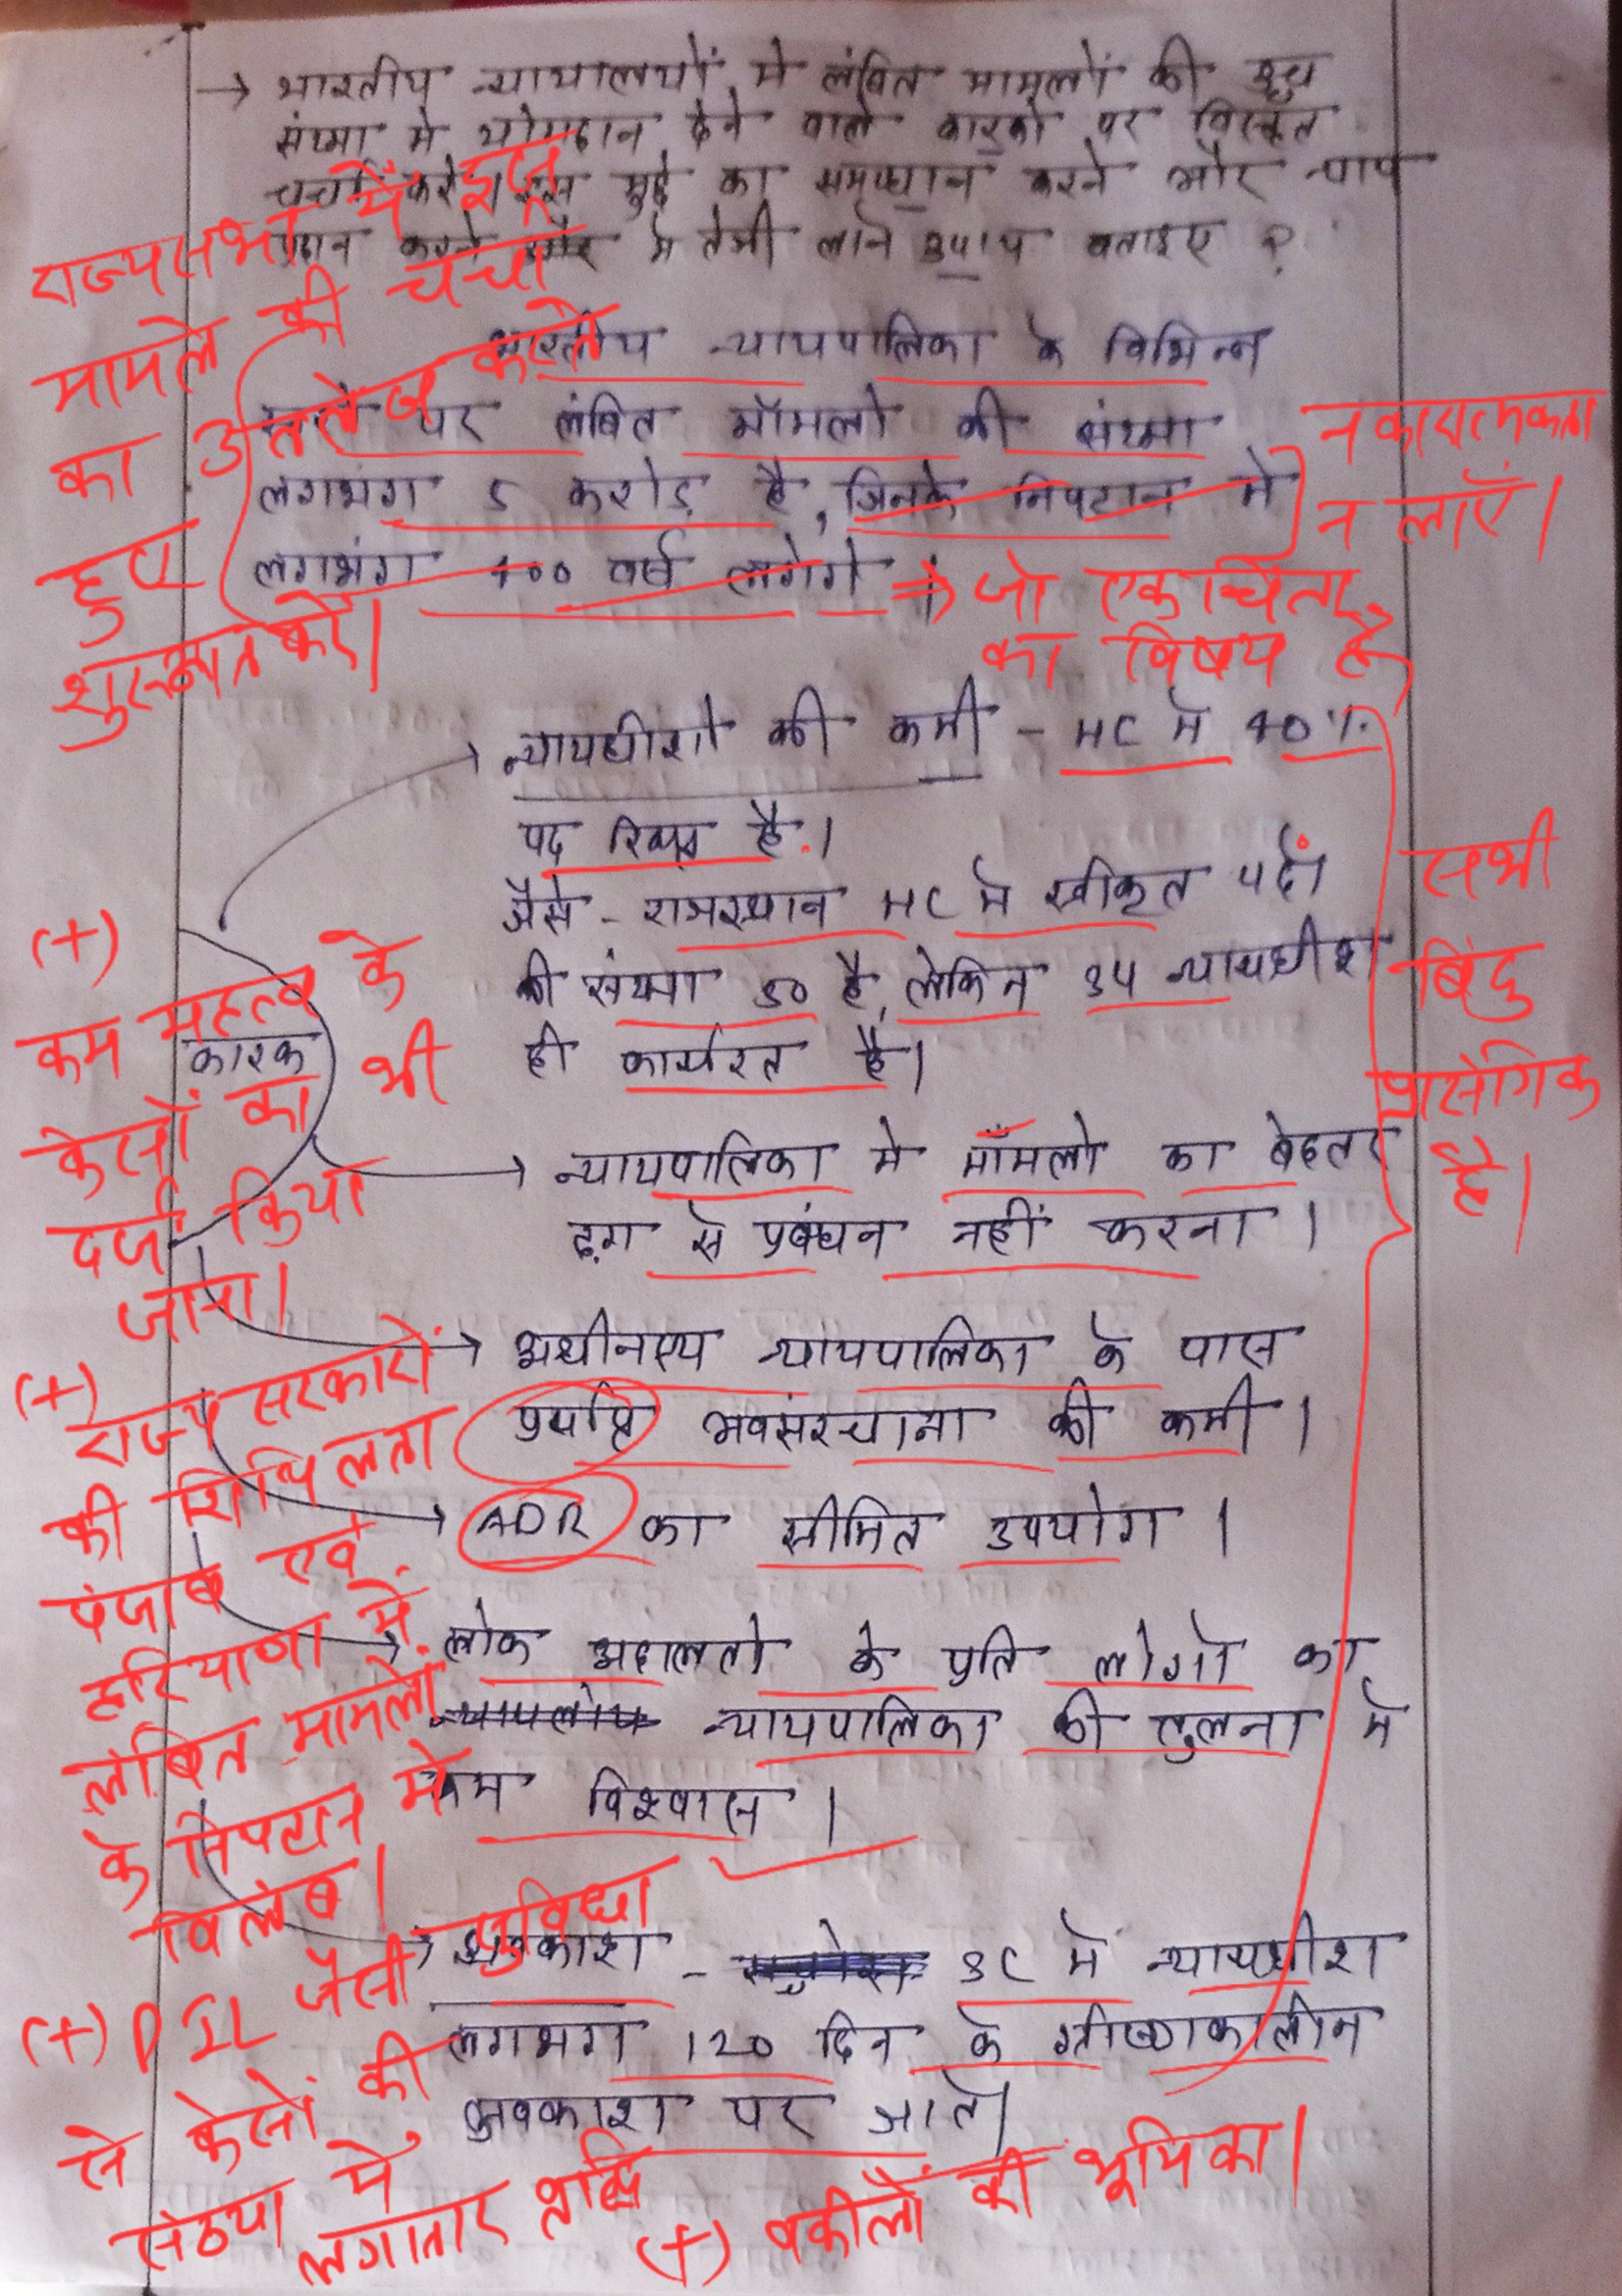 → भारतीय न्यायालयों मे लंबित मामलों की उच्च
संख्या मे योगदान देने वाले कारको पर विस्तृत
चर्चा करे। इस मुद्दे का समाधान करने और न्याय
प्रदान करने मे तेजी लाने उपाय बताइए ?
भारतीय न्यायपालिका के विभिन्न
पर लंबित मॉमलो की संख्या
लगभग 5 करोड़ है, जिनके निपटान मे
लगभंग 400 वर्ष लगेगे ⇒ जो एक चिंता
का विषय है
राज्यसभा में इस
मामले की चर्चा
का उल्लेख करते
हुए
शुरुआत करें।
नकारात्मकता
न लाएँ।
न्यायधीशो की कमी - HC मे 40%
पद रिक्त है।
जैसे - राजस्थान HC मे स्वीकृत पदों
की संख्या 50 है, लेकिन 34 न्यायधीश
ही कार्यरत है।
कारक
न्यायपालिका मे मॉमलो का बेहतर
ढ़ग से प्रबंधन नहीं करना।
अधीनस्थ न्यायपालिका के पास
प्रर्याप्त अवसंरचाना की कमी।
ADR का सीमित उपयोग।
लोक अदालतो के प्रति लोगो का
न्यायपालिका की तुलना मे
कम विश्वास।
अवकाश - SC मे न्यायधीश
लगभग 120 दिन के ग्रीष्मकालीन
अवकाश पर जाते।
सभी
बिंदु
प्रासंगिक
है।
(+)
कम महत्व के
केसों का भी
दर्ज किया
जाना।
(+)
राज्य सरकारों
की शिथिलता
पंजाब एवं
हरियाणा में
लंबित मामलों
के निपटान में
विलंब।
(+) PIL जैसी सुविधा
से केसों की
संख्या में
लगातार वृद्धि
(+) वकीलों की भूमिका।